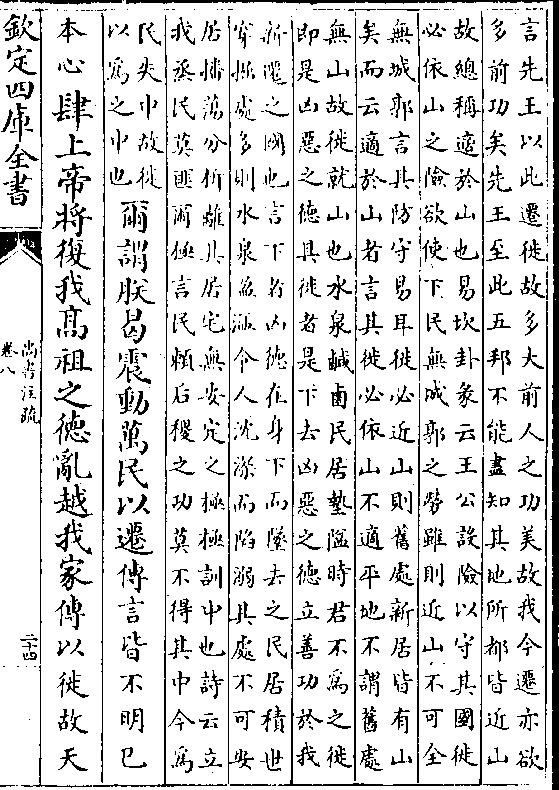 言先王以此遷徙故多大前人之功美故我今遷亦欲
多前功矣先王至此五邦不能盡知其地所都皆近山
故總稱適於山也易坎卦彖云王公設險以守其國徙
必依山之險欲使下民無城郭之勞雖則近山不可全
無城郭言其防守易耳徙必近山則舊處新居皆有山
矣而云適於山者言其徙必依山不適平地不謂舊處
無山故徙就山也水泉鹹鹵民居墊隘時君不為之徙
即是凶惡之德其徙者是下去凶惡之德立善功於我
新遷之國也言下者凶德在身下而墜去之民居積世
穿掘處多則水泉盈溢令人沈深而陷溺其處不可安
居播蕩分析離其居宅無安定之極極訓中也詩云立
我烝民莫匪爾極言民賴后稷之功莫不得其中今為
民失中故徙
以為之中也
爾謂朕曷震動萬民以遷傳言皆不明已
本心肆上帝將復我高祖之德亂越我家傳以徙故天
欽定四庫全書
尚書注疏
卷八
二十四